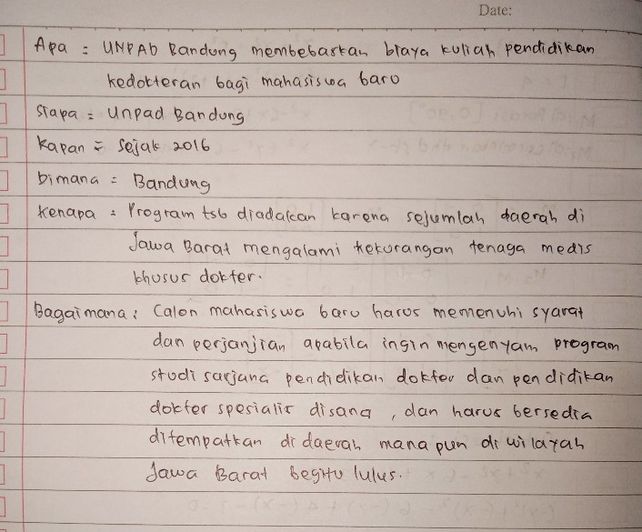 Date:
Apa : UNPAD Bandung membebaskan biaya kuliah pendidikan
kedokteran bagi mahasiswa baru
Siapa : Unpad Bandung
Kapan : Sejak 2016
Dimana : Bandung
Kenapa : Program tsb diadakan karena sejumlah daerah di
Jawa Barat mengalami kekurangan tenaga medis
khusus dokter.
Bagaimana : Calon mahasiswa baru harus memenuhi syarat
dan perjanjian apabila ingin mengenyam program
studi sarjana pendidikan dokter dan pendidikan
dokter spesialis disana, dan harus bersedia
ditempatkan di daerah mana pun di wilayah
Jawa Barat begitu lulus.